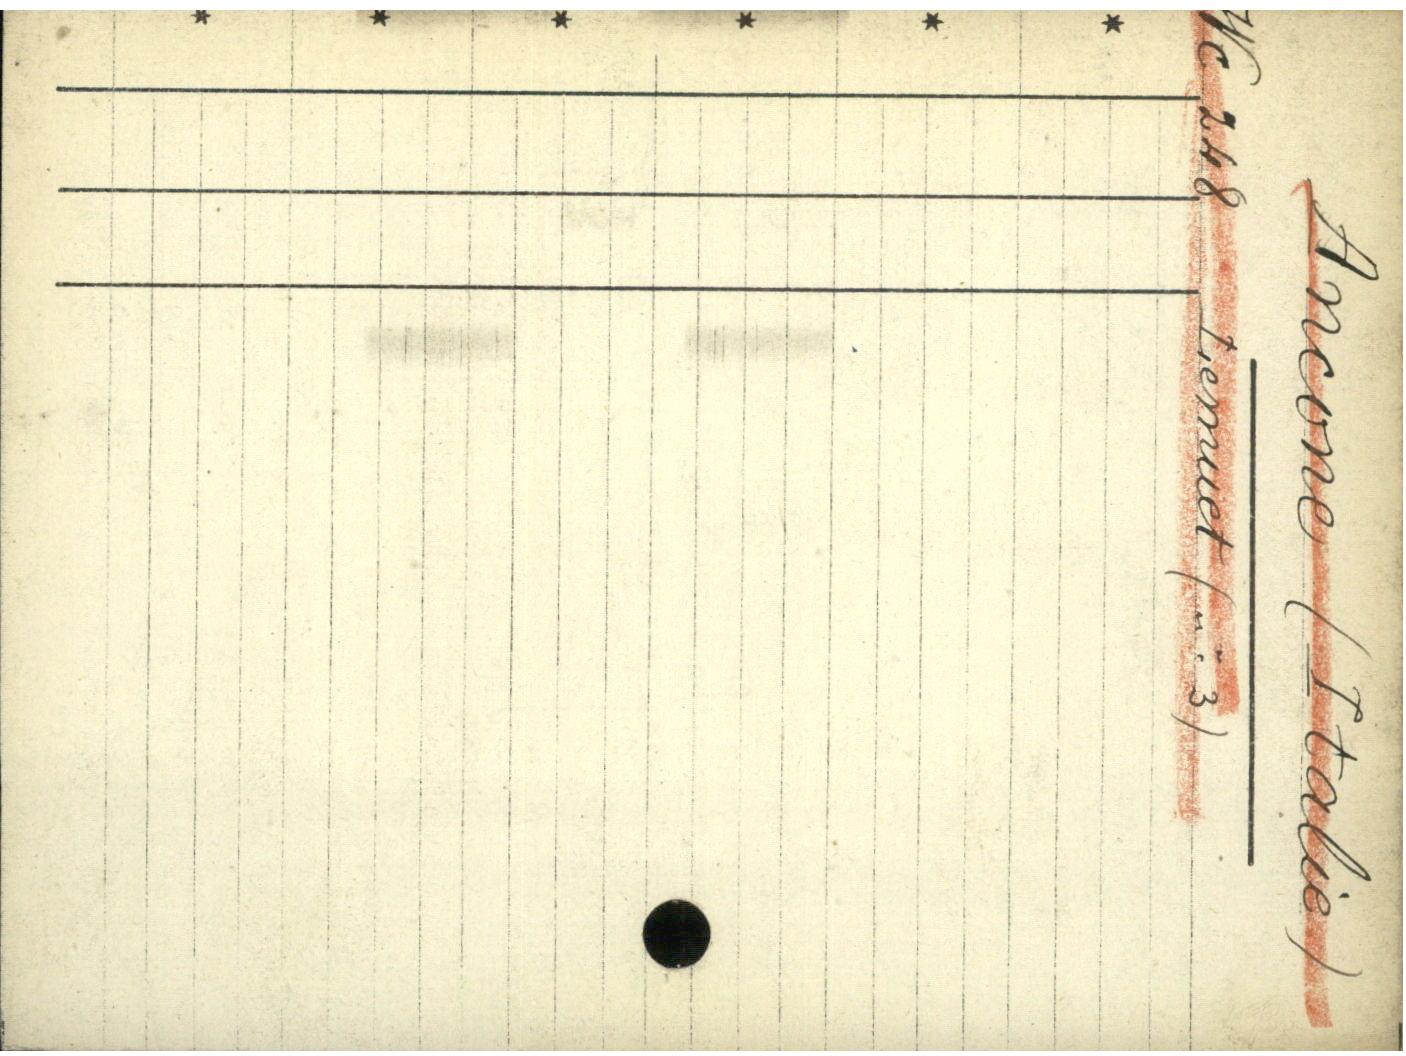 Ancone (Italie)
Wc 248 Lemuet (n: 3)